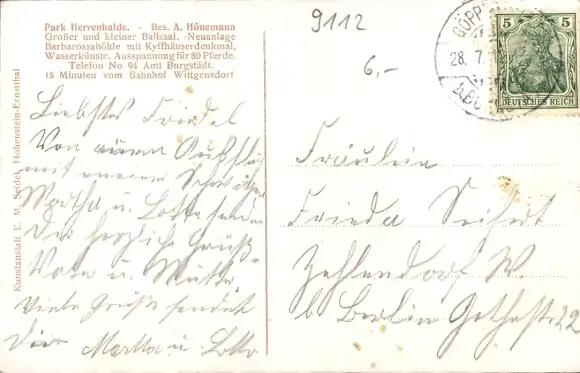 Park Herrenhaide. - Bes. A. Hönemann
Großer und kleiner Ballsaal. Neuanlage
Barbarossahöhle mit Kyffhäuserdenkmal,
Wasserkünste. Ausspannung für 80 Pferde.
Telefon No 94 Amt Burgstädt.
15 Minuten vom Bahnhof Wittgensdorf
Kunstanstalt E. M. Seidel, Hohenstein-Ernstthal
9112
6,-
28. 7.
5 5
DEUTSCHES REICH
Liebstes Friedel
Von Ausflug
mit
Martha u. Lotte senden
Dir herzliche Grüße
Vater u. Mutter
Viele Grüße sendet
Dir Martha u. Lotte
Fräulein
Frieda Seifert
Zehlendorf W.
b Berlin Gothestr. 22